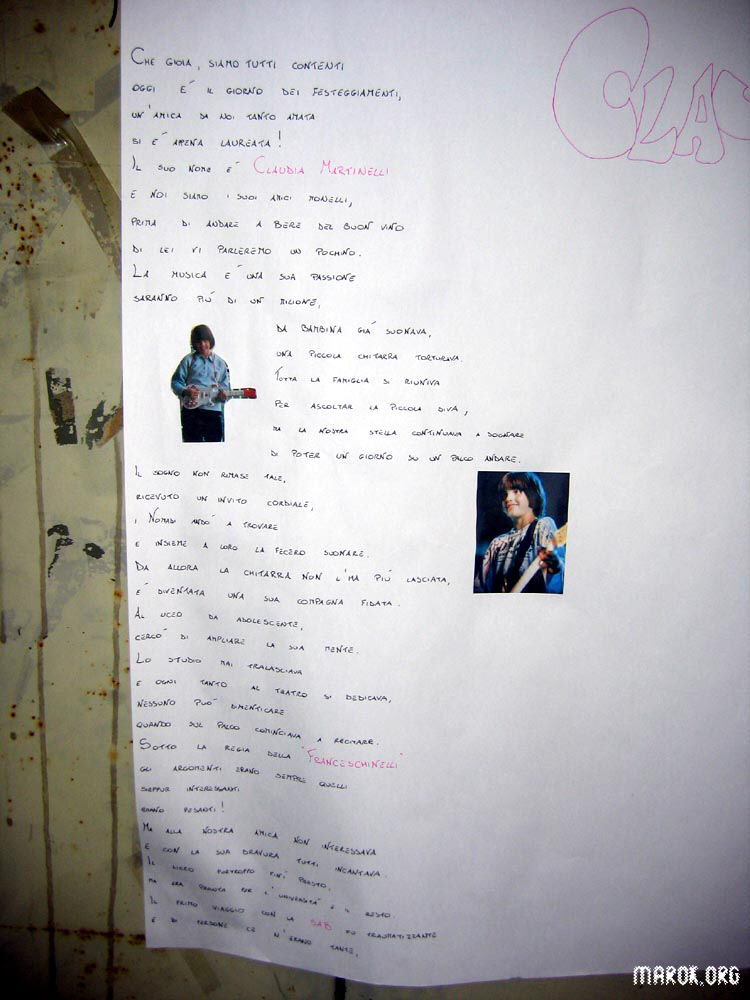 CLAU
CHE GIOIA, SIAMO TUTTI CONTENTI
OGGI E' IL GIORNO DEI FESTEGGIAMENTI,
UN'AMICA DA NOI TANTO AMATA
SI E' APENA LAUREATA!
IL SUO NOME E' CLAUDIA MARTINELLI
E NOI SIAMO I SUOI AMICI MONELLI,
PRIMA DI ANDARE A BERE DEL BUON VINO
DI LEI VI PARLEREMO UN POCHINO.
LA MUSICA E' UNA SUA PASSIONE
SARANNO PIU' DI UN MILIONE,
DA BAMBINA GIA' SUONAVA,
UNA PICCOLA CHITARRA TORTURAVA.
TUTTA LA FAMIGLIA SI RIUNIVA
PER ASCOLTAR LA PICCOLA DIVA,
MA LA NOSTRA STELLA CONTINUAVA A SOGNARE
DI POTER UN GIORNO SU UN PALCO ANDARE.
IL SOGNO NON RIMASE TALE,
RICEVUTO UN INVITO CORDIALE,
I NOMADI ANDO' A TROVARE
E INSIEME A LORO LA FECERO SUONARE.
DA ALLORA LA CHITARRA NON L'HA PIU' LASCIATA,
E' DIVENTATA UNA SUA COMPAGNA FIDATA.
AL LICEO DA ADOLESCENTE,
CERCO' DI AMPLIARE LA SUA MENTE.
LO STUDIO MAI TRALASCIAVA
E OGNI TANTO AL TEATRO SI DEDICAVA,
NESSUNO PUO' DIMENTICARE
QUANDO SUL PALCO COMINCIAVA A RECITARE.
SOTTO LA REGIA DELLA "FRANCESCHINELLI"
GLI ARGOMENTI ERANO SEMPRE QUELLI
SEPPUR INTERESSANTI
ERANO PESANTI!
MA ALLA NOSTRA AMICA NON INTERESSAVA
E CON LA SUA BRAVURA TUTTI INCANTAVA.
IL LICEO PURTROPPO FINI' PRESTO,
MA ERA PRONTA PER L'UNIVERSITA' E IL RESTO.
IL PRIMO VIAGGIO CON LA SAB FU TRAUMATIZZANTE
E DI PERSONE CE N'ERANO TANTE,
MAROK.ORG